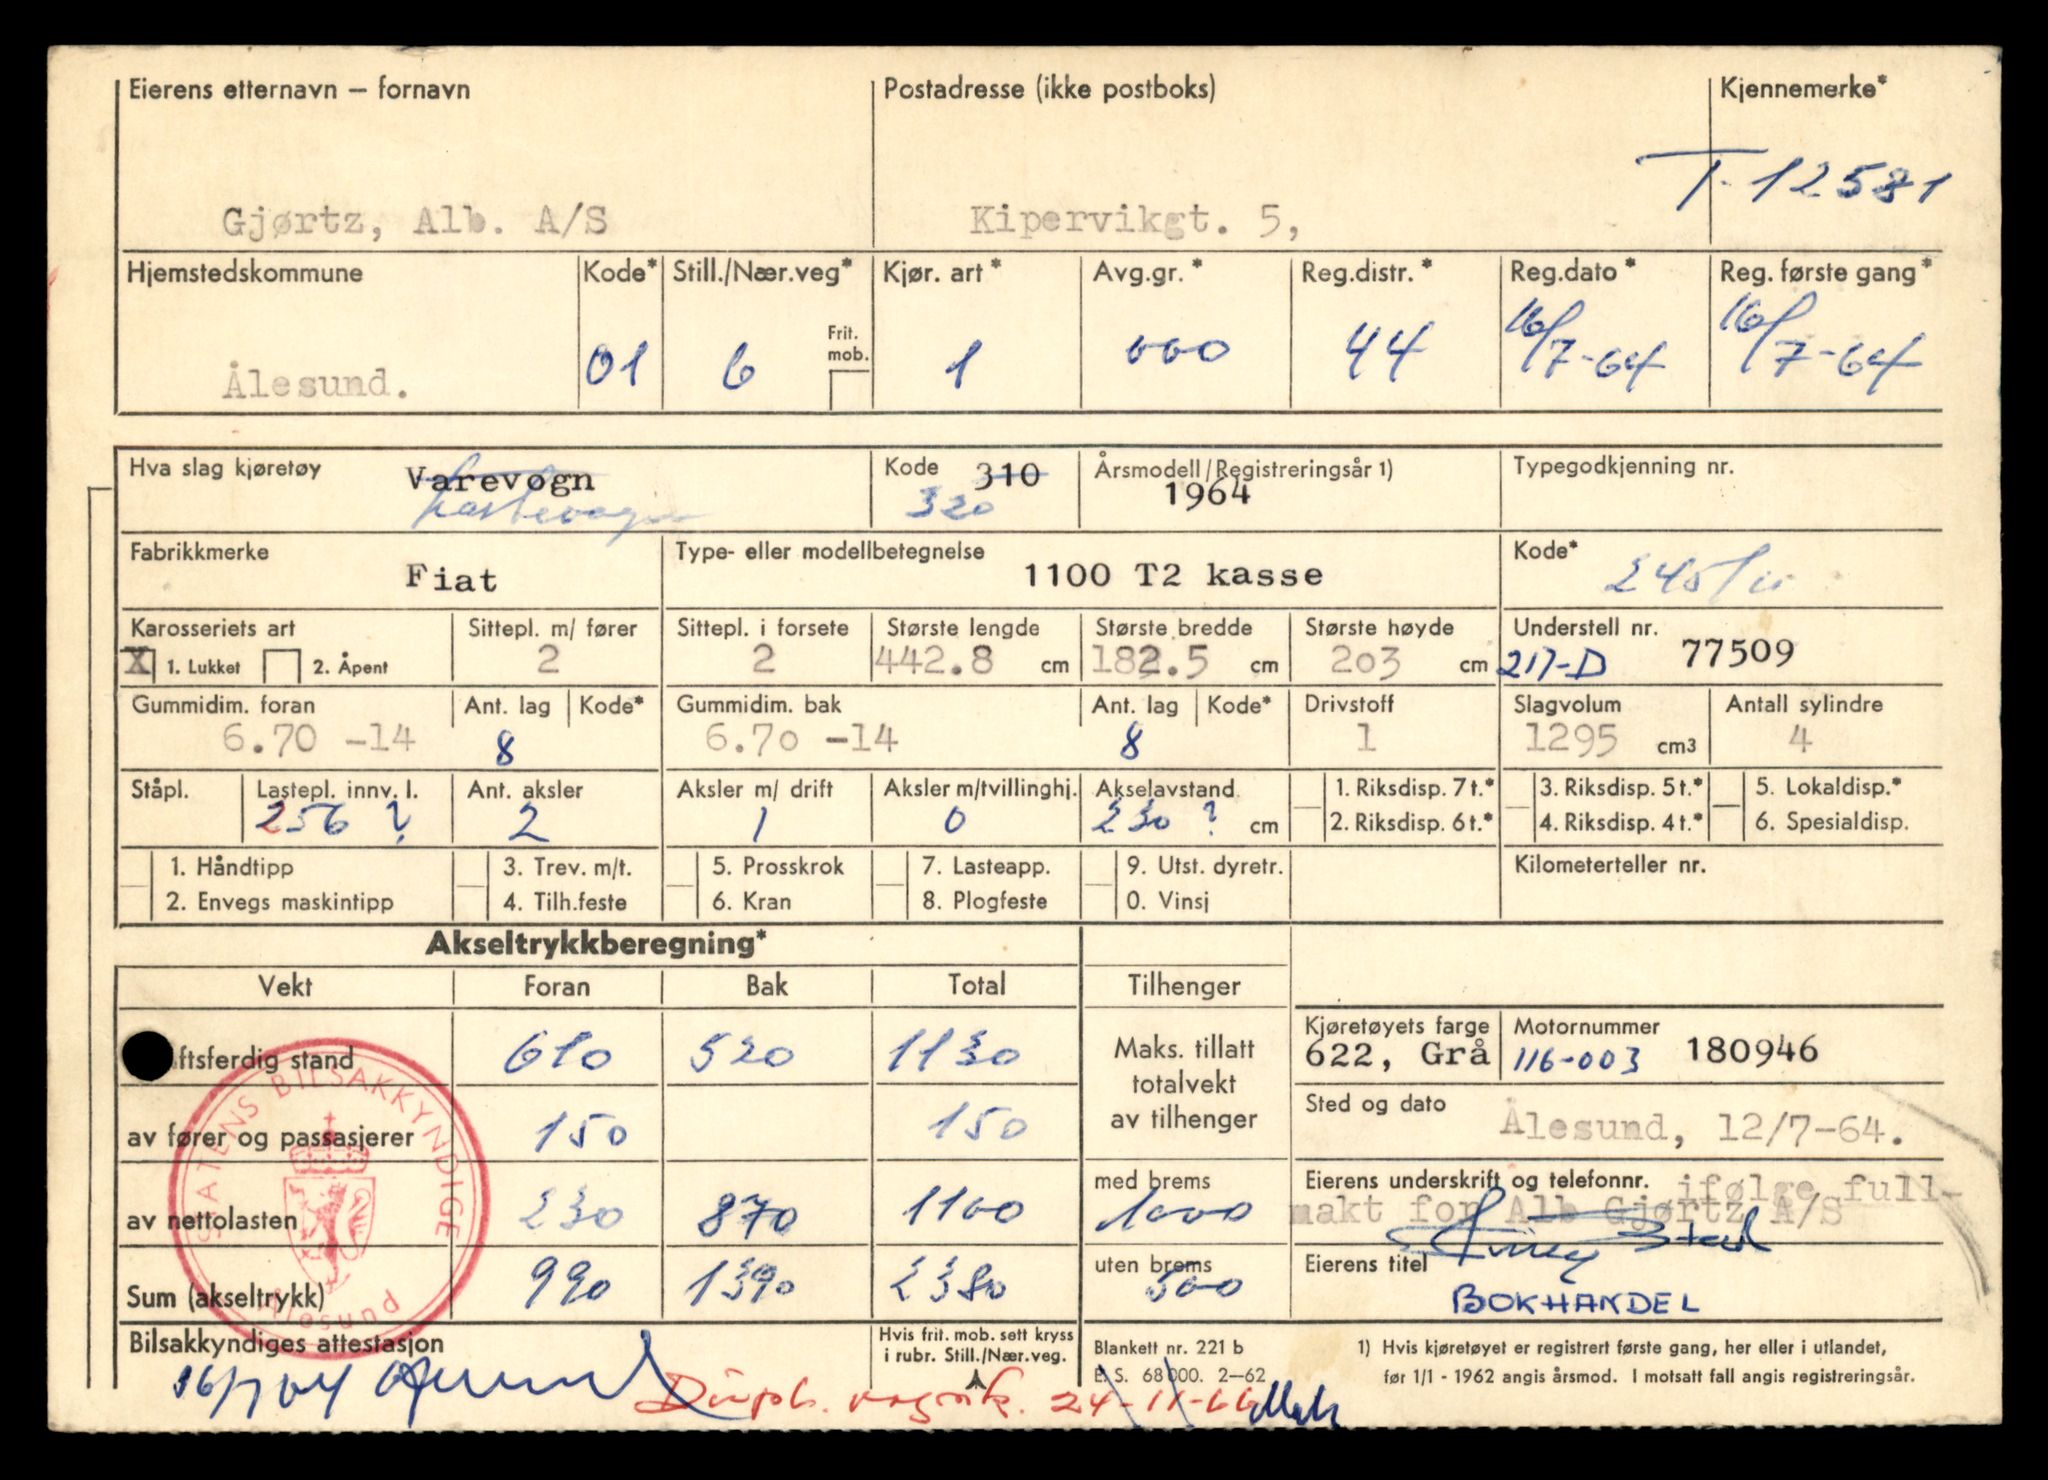 Eierens etternavn — fornavn Postadresse (ikke postboks) Kjennemerke*
T-12581
Gjørtz, Alb. A/S Kipervikgt. 5,
Hjemstedskommune Kode* Still./Nær.veg* Kjør. art* Avg.gr.* Reg.distr.* Reg.dato* Reg. første gang*
Frit. mob.
Ålesund. 01 6 1 000 44 16/7-64 16/7-64
Hva slag kjøretøy Varevogn Kode 310 Årsmodell/Registreringsår 1) Typegodkjenning nr.
Lastevogn 320 1964
Fabrikkmerke Type- eller modellbetegnelse Kode*
Fiat 1100 T2 kasse 240/11
Karosseriets art Sittepl. m/ fører Sittepl. i forsete Største lengde Største bredde Største høyde Understell nr.
X 1. Lukket 2. Åpent 2 2 442.8 cm 182.5 cm 203 cm 217-D 77509
Gummidim. foran Ant. lag Kode* Gummidim. bak Ant. lag Kode* Drivstoff Slagvolum Antall sylindre
6.70 -14 8 6.70 -14 8 1 1295 cm3 4
Ståpl. Lastepl. innv. l. Ant. aksler Aksler m/ drift Aksler m/tvillinghj. Akselavstand 1. Riksdisp. 7 t.* 3. Riksdisp. 5 t.* 5. Lokaldisp.*
256 ? 2 1 0 230 ? cm 2. Riksdisp. 6 t.* 4. Riksdisp. 4 t.* 6. Spesialdisp.
1. Håndtipp 3. Trev. m/t. 5. Prosskrok 7. Lasteapp. 9. Utst. dyretr. Kilometerteller nr.
2. Envegs maskintipp 4. Tilh.feste 6. Kran 8. Plogfeste 0. Vinsj
Akseltrykkberegning*
Vekt Foran Bak Total Tilhenger
ftsferdig stand 610 520 1130 Maks. tillatt totalvekt av tilhenger
Kjøretøyets farge Motornummer
622, Grå 116-003 180946
Sted og dato
Ålesund, 12/7-64.
av fører og passasjerer 150 150
av nettolasten 230 870 1100 med brems 1000
Eierens underskrift og telefonnr. ifølge full-
makt for Alb Gjørtz A/S
Sum (akseltrykk) 990 1390 2380 uten brems 500
Eierens titel
BOKHANDEL
STATENS BILSAKKYNDIGE
Ålesund
Bilsakkyndiges attestasjon Hvis frit. mob. sett kryss i rubr. Still./Nær.veg.
Blankett nr. 221 b
E. S. 68 000. 2—62
1) Hvis kjøretøyet er registrert første gang, her eller i utlandet,
før 1/1 - 1962 angis årsmod. I motsatt fall angis registreringsår.
16/7 64
24-11-66